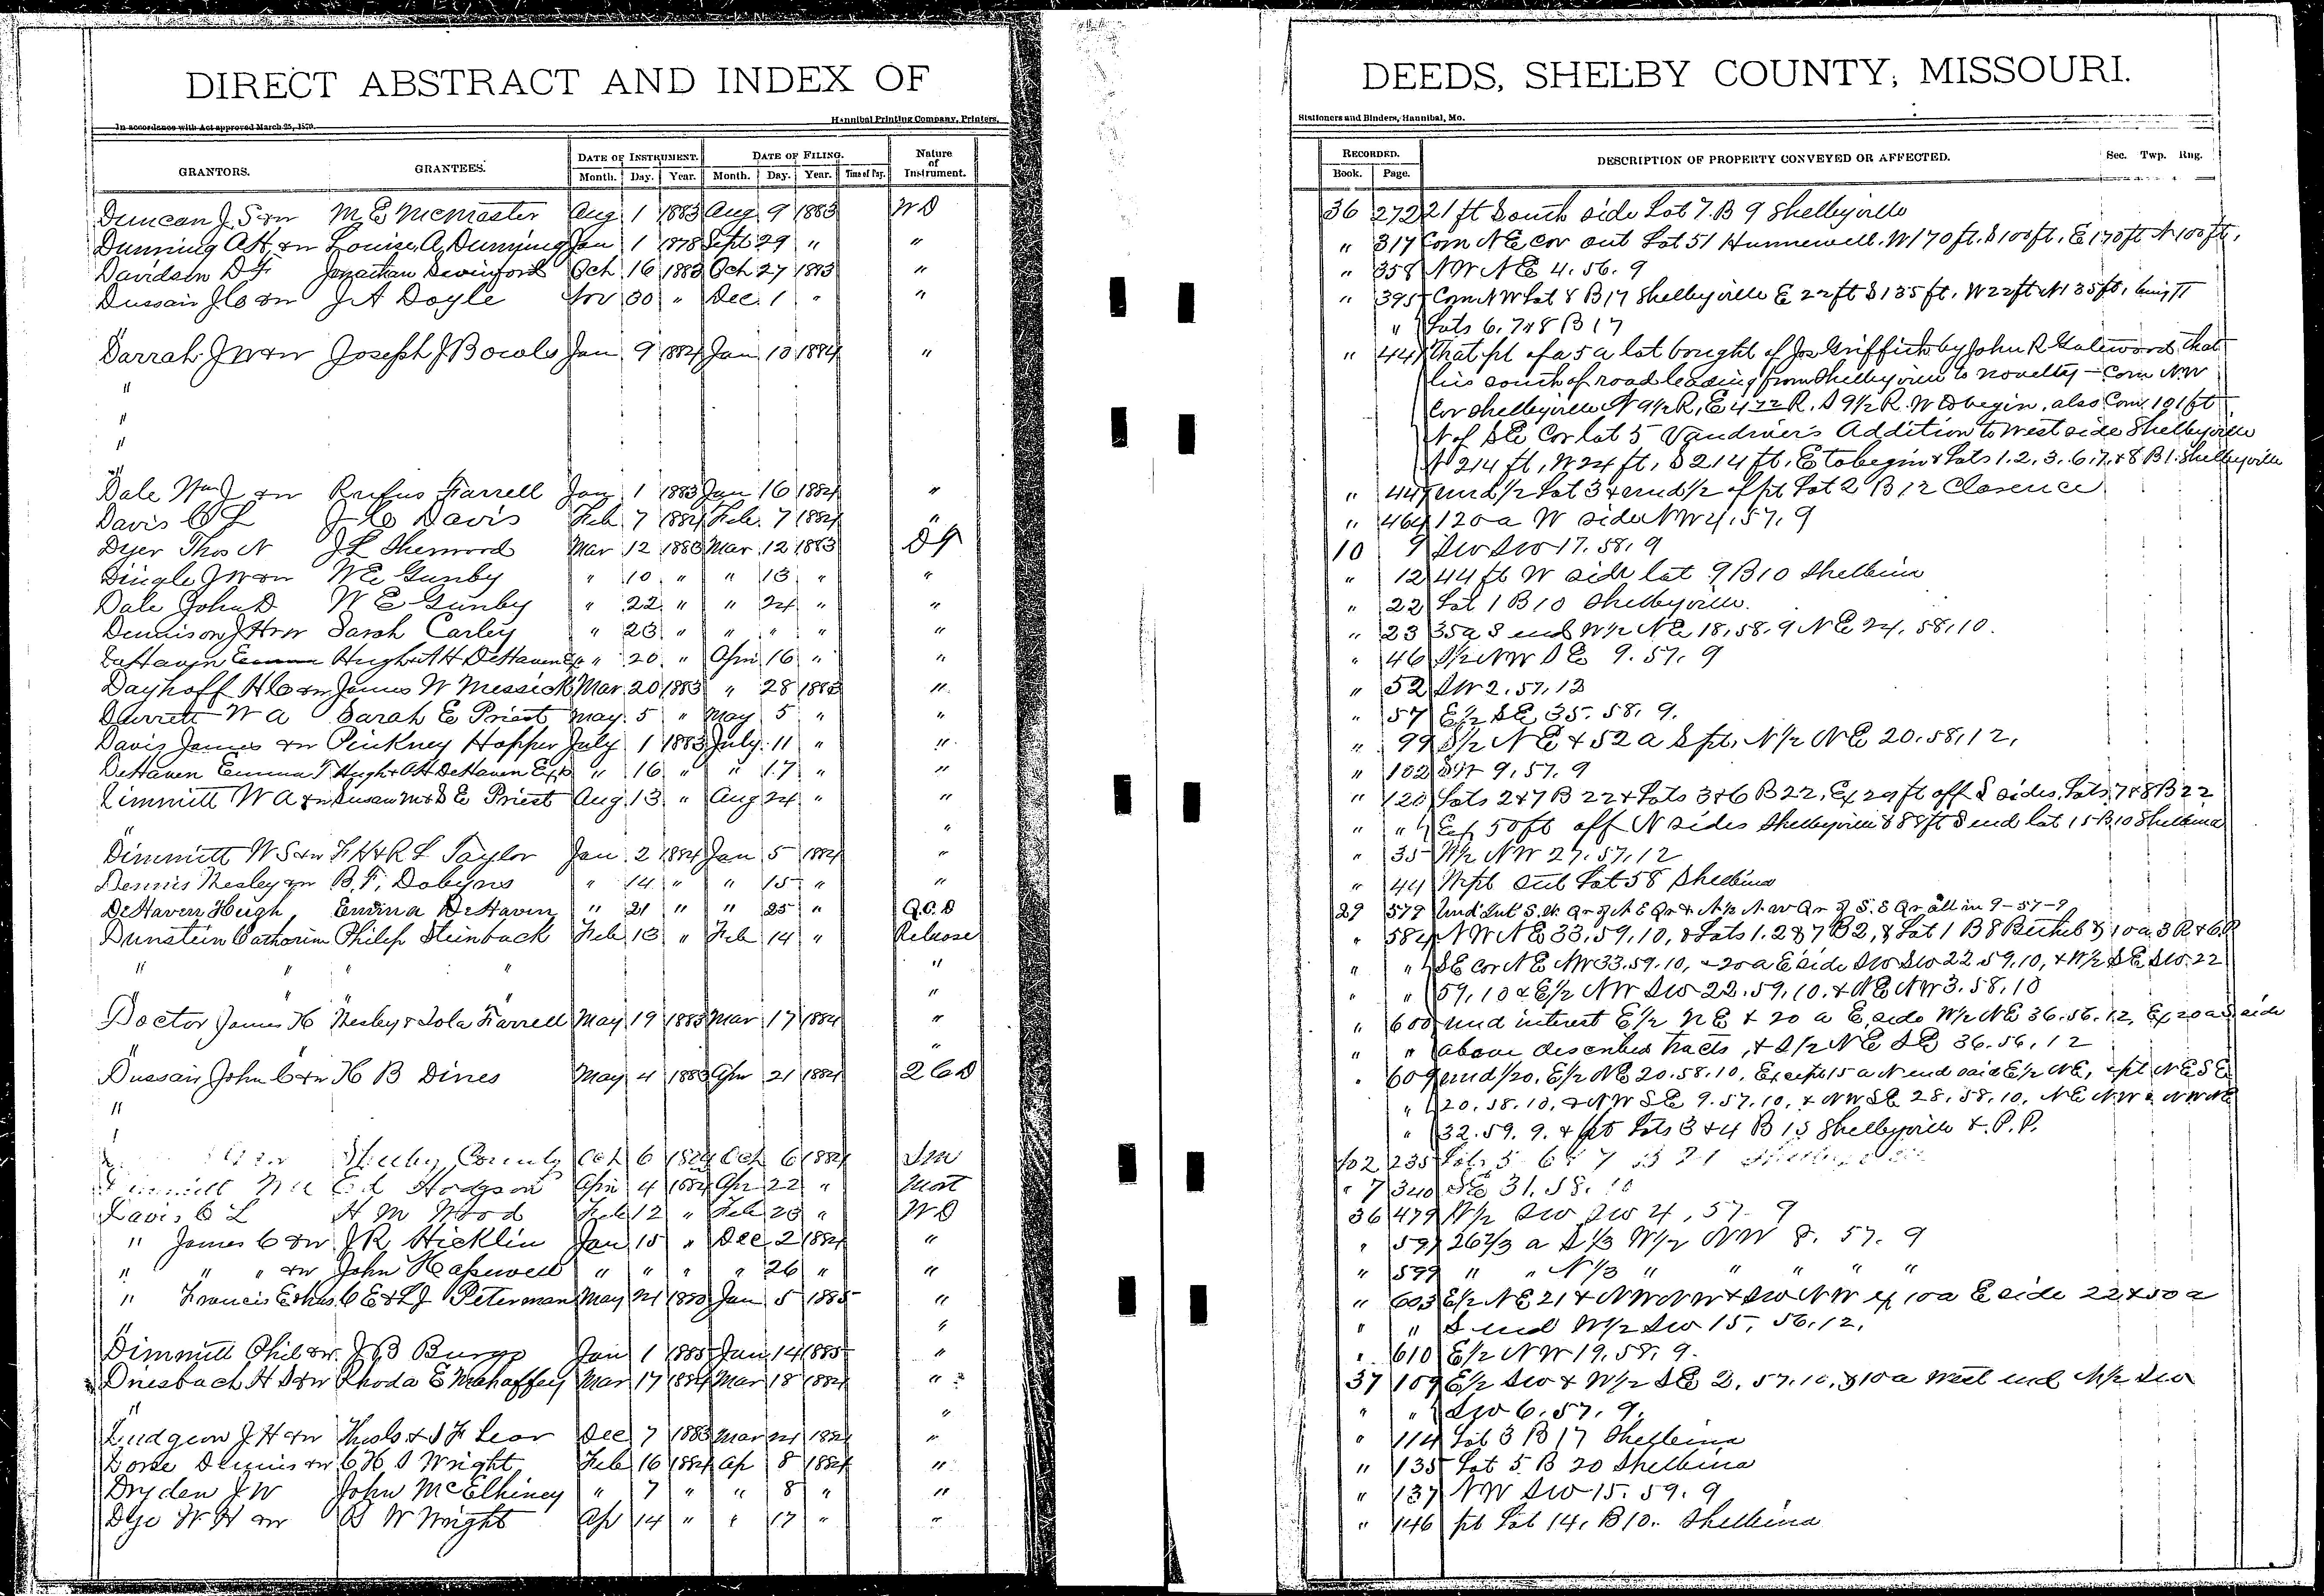 DIRECT ABSTRACT AND INDEX OF DEEDS, SHELBY COUNTY, MISSOURI.
In accordance with Act approved March 25, 1879. Hannibal Printing Company, Printers, Stationers and Binders, Hannibal, Mo.
GRANTORS. GRANTEES. DATE OF INSTRUMENT. DATE OF FILING. Nature of Instrument. RECORDED. DESCRIPTION OF PROPERTY CONVEYED OR AFFECTED. Sec. Twp. Rng.
Month. Day. Year. Month. Day. Year. Time of Day. Book. Page.
Duncan J. S & w M E McMaster Aug 1 1883 Aug 9 1883 WD 36 272 21 ft South side Lot 7. B 9 Shelbyville
Dunning A H & w Louise A Dunning Jan 1 1878 Sept 29 " " " 317 Com NE cor out Lot 51 Hunnewell. W 170 ft. S 100 ft, E 170 ft N 100 ft,
Davidson D F Jonathan Oct 16 1883 Oct 27 1883 " " 358 NW NE 4. 56. 9
Dussair J C & w J A Doyle Nov 30 " Dec 1 " " " 395 Com NW Lot 8 B 17 Shelbyville E 22 ft S 135 ft. W 22 ft N 135 ft, being pt
" " Lots 6. 7 & 8 B 17
Darrah J W & w Joseph J Bowls Jan 9 1884 Jan 10 1884 " " 441 That pt of a 5 a lot bought of Jos Griffith by John R Gatewood that
" lies south of road leading from Shelbyville to Novelty - Com NW
" Cor Shelbyville N 9½ R, E R. S 9½ R. W to begin, also Com 101 ft
" N of SE Cor lot 5 Vandiver's Addition to West side Shelbyville
" N 214 ft, W 24 ft, S 214 ft, E to begin & Lots 1. 2. 3. 6. 7. & 8 B 1. Shelbyville
Dale Wm J & w Rufus Farrell Jan 1 1883 Jan 16 1884 " " 447 und ½ Lot 3 & und ½ of pt Lot 2 B 12 Clarence
Davis C L J C Davis Feb 7 1884 Feb. 7 1884 " " 464 120 a W side NW 4. 57. 9
Dyer Thos N J L Sherwood Mar 12 1883 Mar 12 1883 DT 10 9 SW SW 17. 58. 9
Dingle J W & w W E Gunby " 10 " " 13 " " " 12 44 ft W side lot 9 B 10 Shelbina
Dale John D W E Gunby " 22 " " 24 " " " 22 Lot 1 B 10 Shelbyville.
Dennison J H & w Sarah Carley " 23 " " " " " " 23 35 a S end W½ NE 18. 58. 9 NE 24. 58. 10.
DeHaven Emma Hugh & A H DeHaven Ex " 20 " Apri 16 " " " 46 S½ NW SE 9. 57. 9
Dayhoff H C & w James W Messick Mar 20 1883 " 28 1883 " " 52 SW 2. 57. 12
Durrett W A Sarah E Priest May 5 " May 5 " " " 57 E½ SE 35. 58. 9.
Davis James & w Pinkney Hopper July 1 1883 July 11 " " " 99 S½ NE & 52 a S pt. N½ NE 20. 58. 12.
DeHaven Emma T Hugh & A H DeHaven Exrs " 16 " " 17 " " " 102 9. 57. 9
Dimmitt W A & w Susan M & S E Priest Aug 13 " Aug 24 " " " 120 Lots 2 & 7 B 22 & Lots 3 & 6 B 22, Ex 29 ft off S sides, Lots 7 & 8 B 22
" " " " Exp 50 ft off N sides Shelbyville & 88 ft S end lot 15 B 10 Shelbina
Dimmitt W S & w F H & R L Taylor Jan 2 1884 Jan 5 1884 " " 35 W½ NW 27. 57. 12
Dennis Wesley & w B. F. Dobyns " 14 " " 15 " " " 44 W pt out Lot 58 Shelbina
DeHaven Hugh Emma DeHaven " 21 " " 25 " Q.C.D 29 579 Und Int S.W. Qr of N E Qr & N½ N W Qr of S. E Qr all in 9-57-9
Dunstein Catharine Philip Steinback Feb 13 " Feb 14 " Release " 582 NW NE 33. 59. 10, & Lots 1. 2 & 7 B 2, & Lot 1 B 8 Bethel & 10 a. 3 R & 6 P
" " " " " " " SE cor NE NW 33. 59. 10, & 20 a E side SW SW 22 59. 10, & W½ SE SW 22
" " " " 59. 10 & E½ NW SW 22. 59. 10. & NE NW 3. 58. 10
Doctor James H Wesley & Lola Farrell May 19 1883 Mar 17 1884 " " 600 und interest E½ NE & 20 a E side W½ NE 36. 56. 12, Ex 20 a S side
" " " " above described tracts, & S½ NE SE 36. 56. 12
Dussair John C & w H B Dines May 4 1883 Apr 21 1884 QCD " 609 und 1/20. E½ NE 20. 58. 10, Except 15 a N end said E½ NE, & pt NE SE
" " 20. 58. 10, & NW SE 9. 57. 10, & NW SE 28. 58. 10, NE NW & NW NE
" " 32. 59. 9. & pt Lots 3 & 4 B 15 Shelbyville & P. P.
Shelby County Oct 6 1884 Oct 6 1884 102 235 Lots 5 6 & 7 B 21
Dimmitt W A Ed Hodgson Apri 4 1884 Apr 22 " Mort " 7 340 SE 31. 58. 10
Davis C L H M Wood Feb 12 " Feb 23 " WD 36 479 W½ SW SW 4, 57. 9
" James C & w J R Hicklin Jan 15 " Dec 2 1884 " " 597 26⅔ a S ⅓ W½ NW 8. 57. 9
" " " & w John " " " " 26 " " " 599 " " N ⅓ " " " " "
" Francis E & hus C E & L J Peterman May 24 1883 Jan 5 1885 " " 603 E½ NE 21 & NW NW & SW NW ex 10 a E side 22 & 50 a
" " " " S end W½ SW 15. 56. 12.
Dimmitt Phil & w. J B Burgo Jan 1 1885 Jan 14 1885 " " 610 E½ NW 19. 58. 9.
Driesbach H S & w Rhoda E Mahaffey Mar 17 1884 Mar 18 1884 " 37 109 E½ SW & W½ SE 2. 57. 10. & 10 a West end N½ SW
" " " " SW 6. 57. 9.
Dudgeon J H & w & S F Lear Dec 7 1883 Mar 24 1884 " " 114 Lot 3 B 17 Shelbina
Dorse Dennis & w C H S Wright Feb 16 1884 Ap 8 1884 " " 135 Lot 5. B 20 Shelbina
Dryden J W John McElhiney " 7 " " 8 " " " 137 NW SW 15. 59. 9
Dye W H & w W Wright Ap 14 " " 17 " " " 146 pt Lot 14. B 10. Shelbina